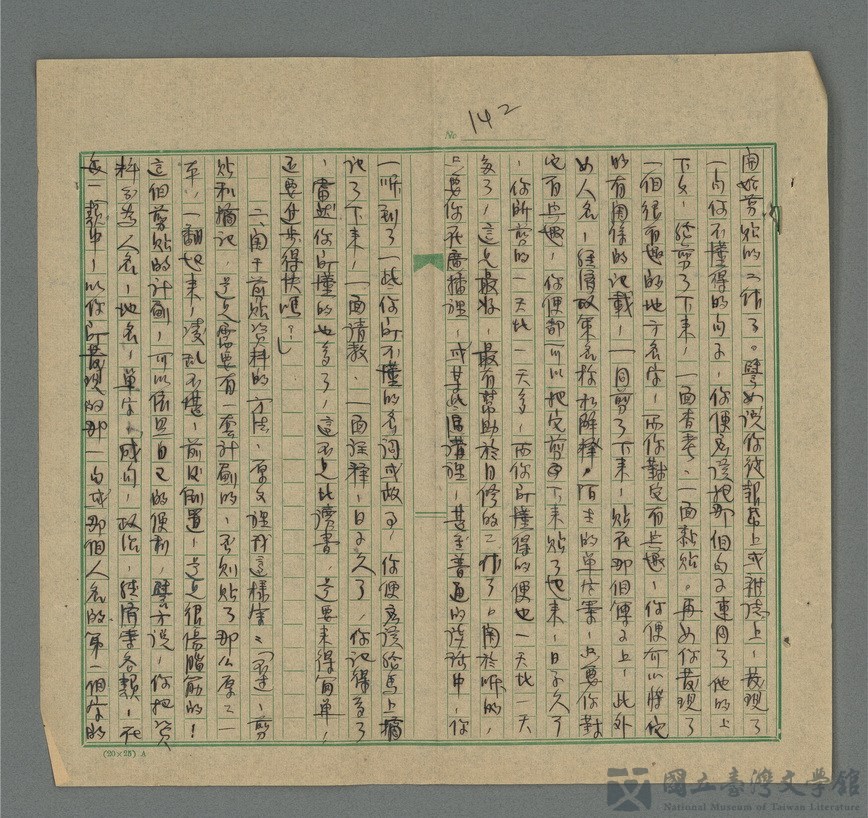 No. 142
開始剪貼的工作了。譬如說你從報章上或雜誌上，發現了
一句你不懂得的句子，你便應該把那個句子連同了他的上
下文，給剪了下來，一面查考、一面黏貼。再如你發現了
一個很有趣的地方名字，而你對它有興趣，你便可以將它
的有關係的記載，一同剪了下來，貼在那個簿子上，此外
如人名，經濟政策名稱和解釋，陌生的單字等，只要你對
它有興趣，你便都可以把它剪下來貼了起來，日子久了
，你所剪的一天比一天多，而你所懂得的便也一天比一天
多了，這是最好，最有幫助於自修的工作了。關於聽的，
只要你在廣播裡，或某些演講裡，甚至普通的談話中，你
一聽到了一些你所不懂的名詞或故事，你便應該給馬上摘
記了下來，一面請教、一面註釋，日子久了，你記得多了
，當然你所懂的也多了，這不是比讀書，還要來得簡單，
還要進步得快嗎？」
二、關于剪貼資料的方法，原文裡有這樣寫：「不過，剪
貼和摘記，是需要有一套計劃的，否則貼了那么厚
本，一翻起來，凌亂不堪，前后倒置，是很傷腦筋的！
這個剪貼的計劃，可以依照自己的便利，譬方說，你把資
料分為人名，地名，單字，成句，政治，經濟等各類，在
每一類中，以你所發現的那一句或那個人名的第一個字的
(20×25) A
國立臺灣文學館
National Museum of Taiwan Literature